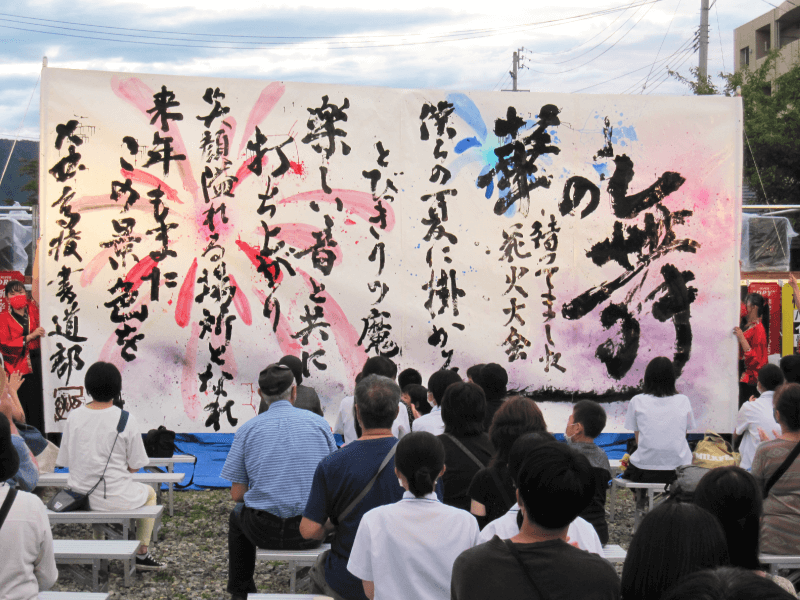 の華
待ってました
花火大会
僕らの
に掛かる
とびきりの魔
楽しい音と共に
打ち上がり
笑顔溢れる場所となれ
来年もまた
この景色を
書道部